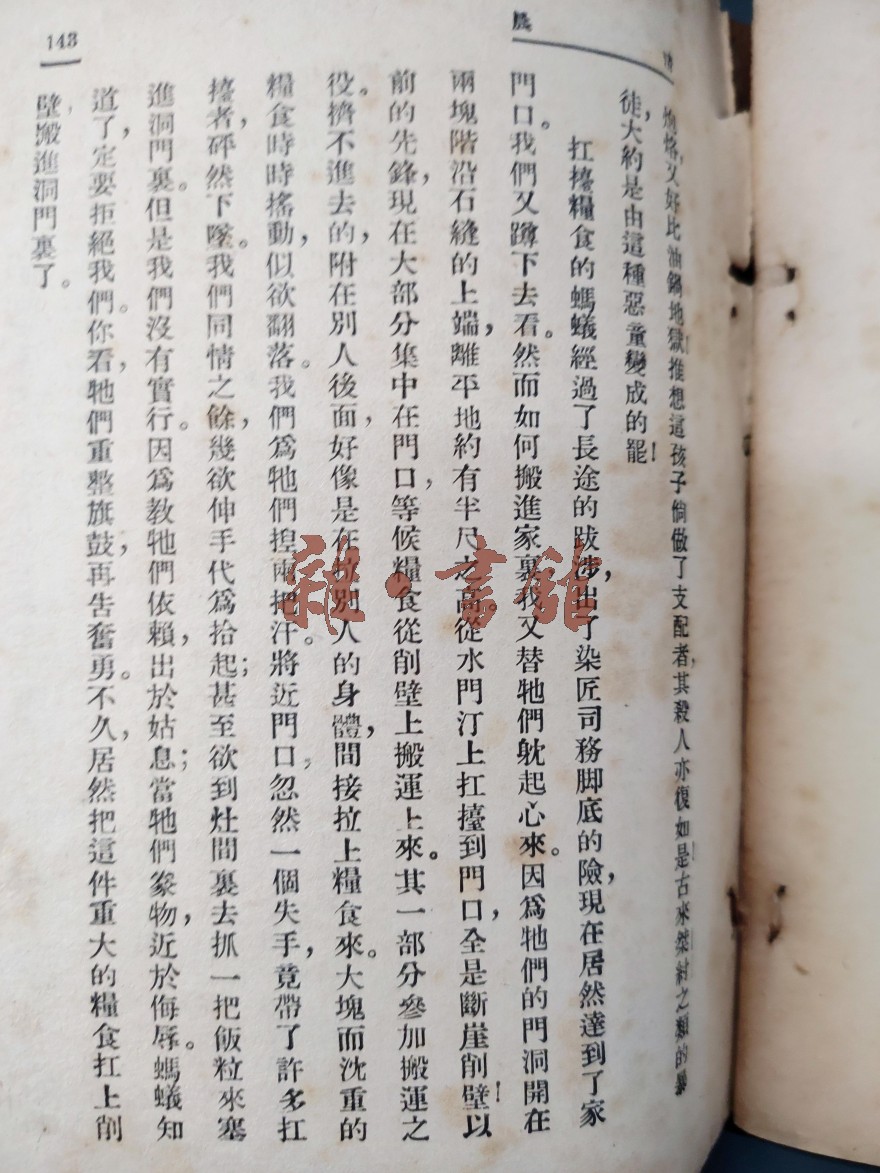 晨
143
炮烙，又好比油鍋地獄！推想這孩子倘做了支配者，其殺人亦復如是！古來桀紂之類的暴
徒，大約是由這種惡童變成的罷！
扛擡糧食的螞蟻經過了長途的跋涉，出了染匠司務脚底的險，現在居然達到了家
門口。我們又蹲下去看。然而如何搬進家裏，我又替牠們躭起心來。因爲牠們的門洞開在
兩塊階沿石縫的上端，離平地約有半尺之高。從水門汀上扛擡到門口，全是斷崖削壁！以
前的先鋒，現在大部分集中在門口，等候糧食從削壁上搬運上來。其一部分參加搬運之
役。擠不進去的，附在別人後面，好像是在拉別人的身體，間接拉上糧食來。大塊而沈重的
糧食時時搖動，似欲翻落。我們爲牠們揑兩把汗。將近門口，忽然一個失手，竟帶了許多扛
擡者，砰然下墜。我們同情之餘，幾欲伸手代爲拾起；甚至欲到灶間裏去抓一把飯粒來塞
進洞門裏。但是我們沒有實行。因爲教牠們依賴，出於姑息；當牠們豢物，近於侮辱。螞蟻知
道了，定要拒絕我們。你看，牠們重整旗鼓，再告奮勇。不久，居然把這件重大的糧食扛上削
壁，搬進洞門裏了。
雜·書館